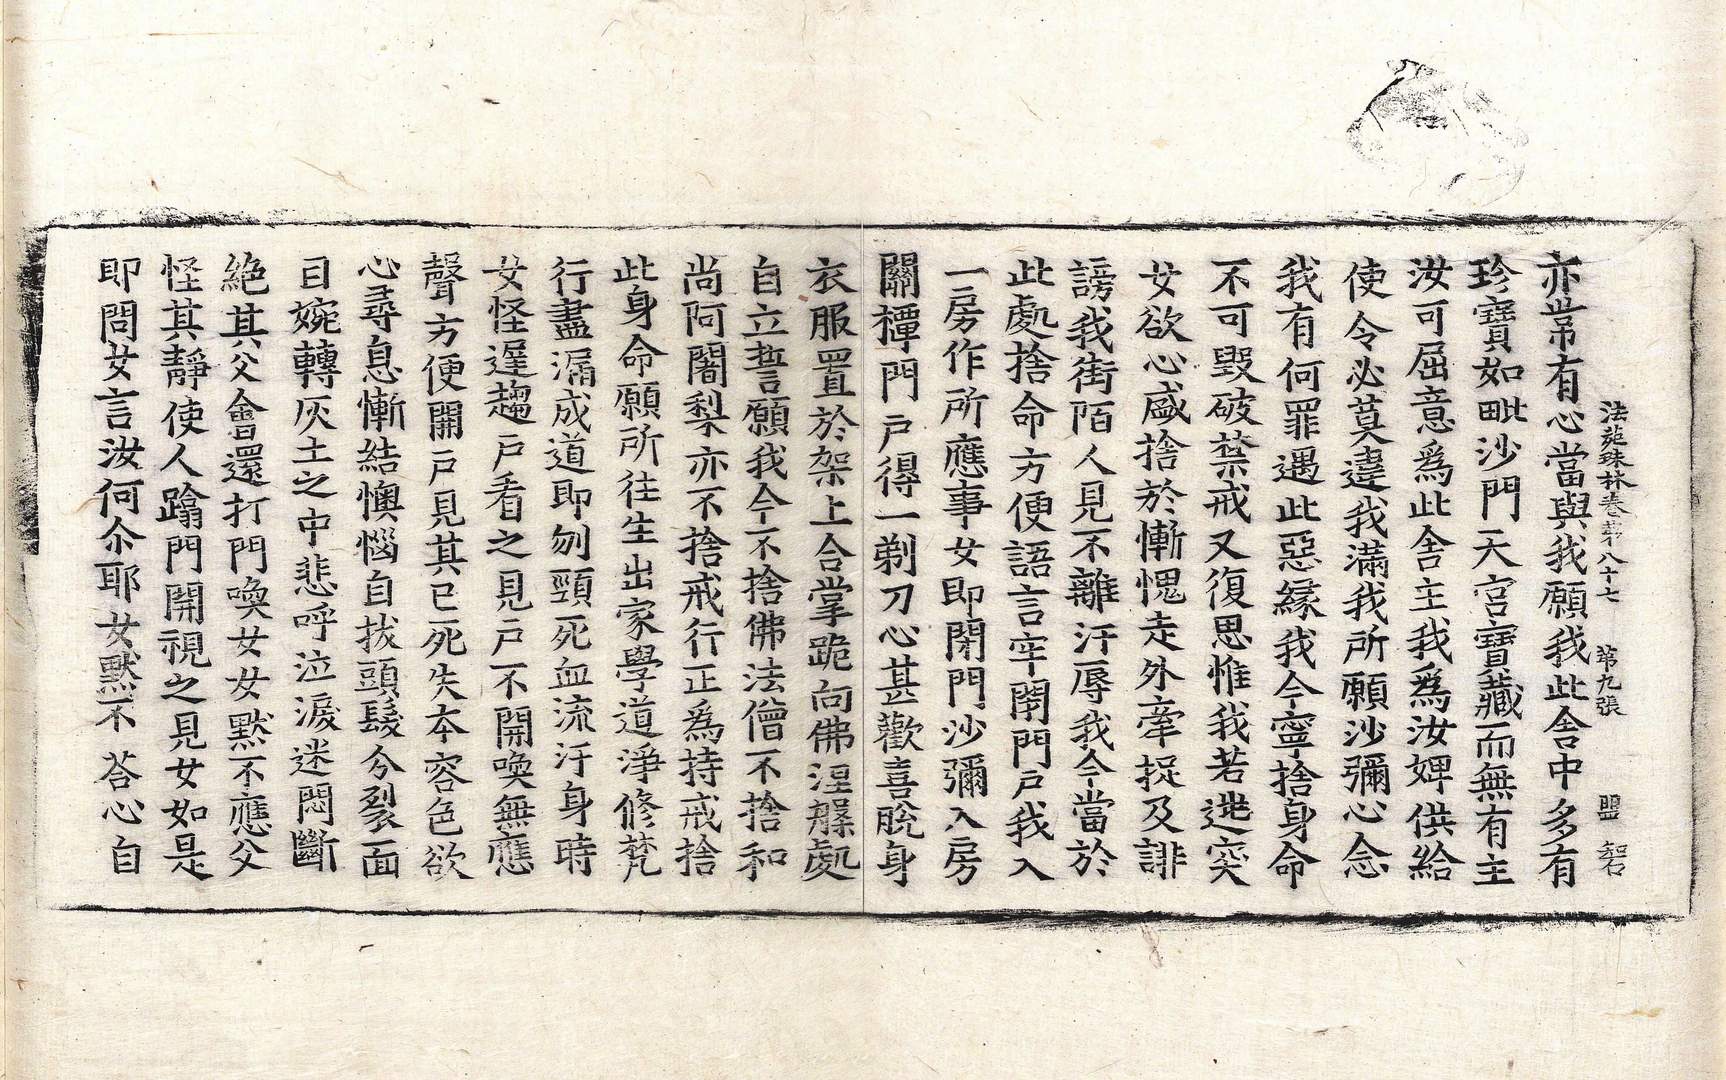 法苑珠林卷第八十七 第九張 盟 䂮
亦當有心當與我願我此舍中多有
珍寶如毗沙門天宮寶藏而無有主
汝可屈意爲此舍主我爲汝婢供給
使令必莫違我滿我所願沙彌心念
我有何罪遇此惡緣我今寧捨身命
不可毀破禁戒又復思惟我若逃突
女欲心盛捨於慚愧走外牽捉及誹
謗我街陌人見不離汙辱我今當於
此處捨命方便語言牢閉門戶我入
一房作所應事女即閉門沙彌入房
關撢門戶得一剃刀心甚歡喜脫身
衣服置於架上合掌跪向佛涅槃處
自立誓言願我今不捨佛法僧不捨和
尚阿闍梨亦不捨戒行正爲持戒捨
此身命願所往生出家學道淨修梵
行盡漏成道即刎頸死血流汙身時
女怪遲趨戶看之見戶不開喚無應
聲方便開戶見其已死失本容色欲
心尋息慚結懊惱自拔頭髮分裂面
目婉轉灰土之中悲呼泣淚迷悶斷
絕其父會還打門喚女女默不應父
怪其靜使人踰門開視之見女如是
即問女言汝何尒耶女默不荅心自